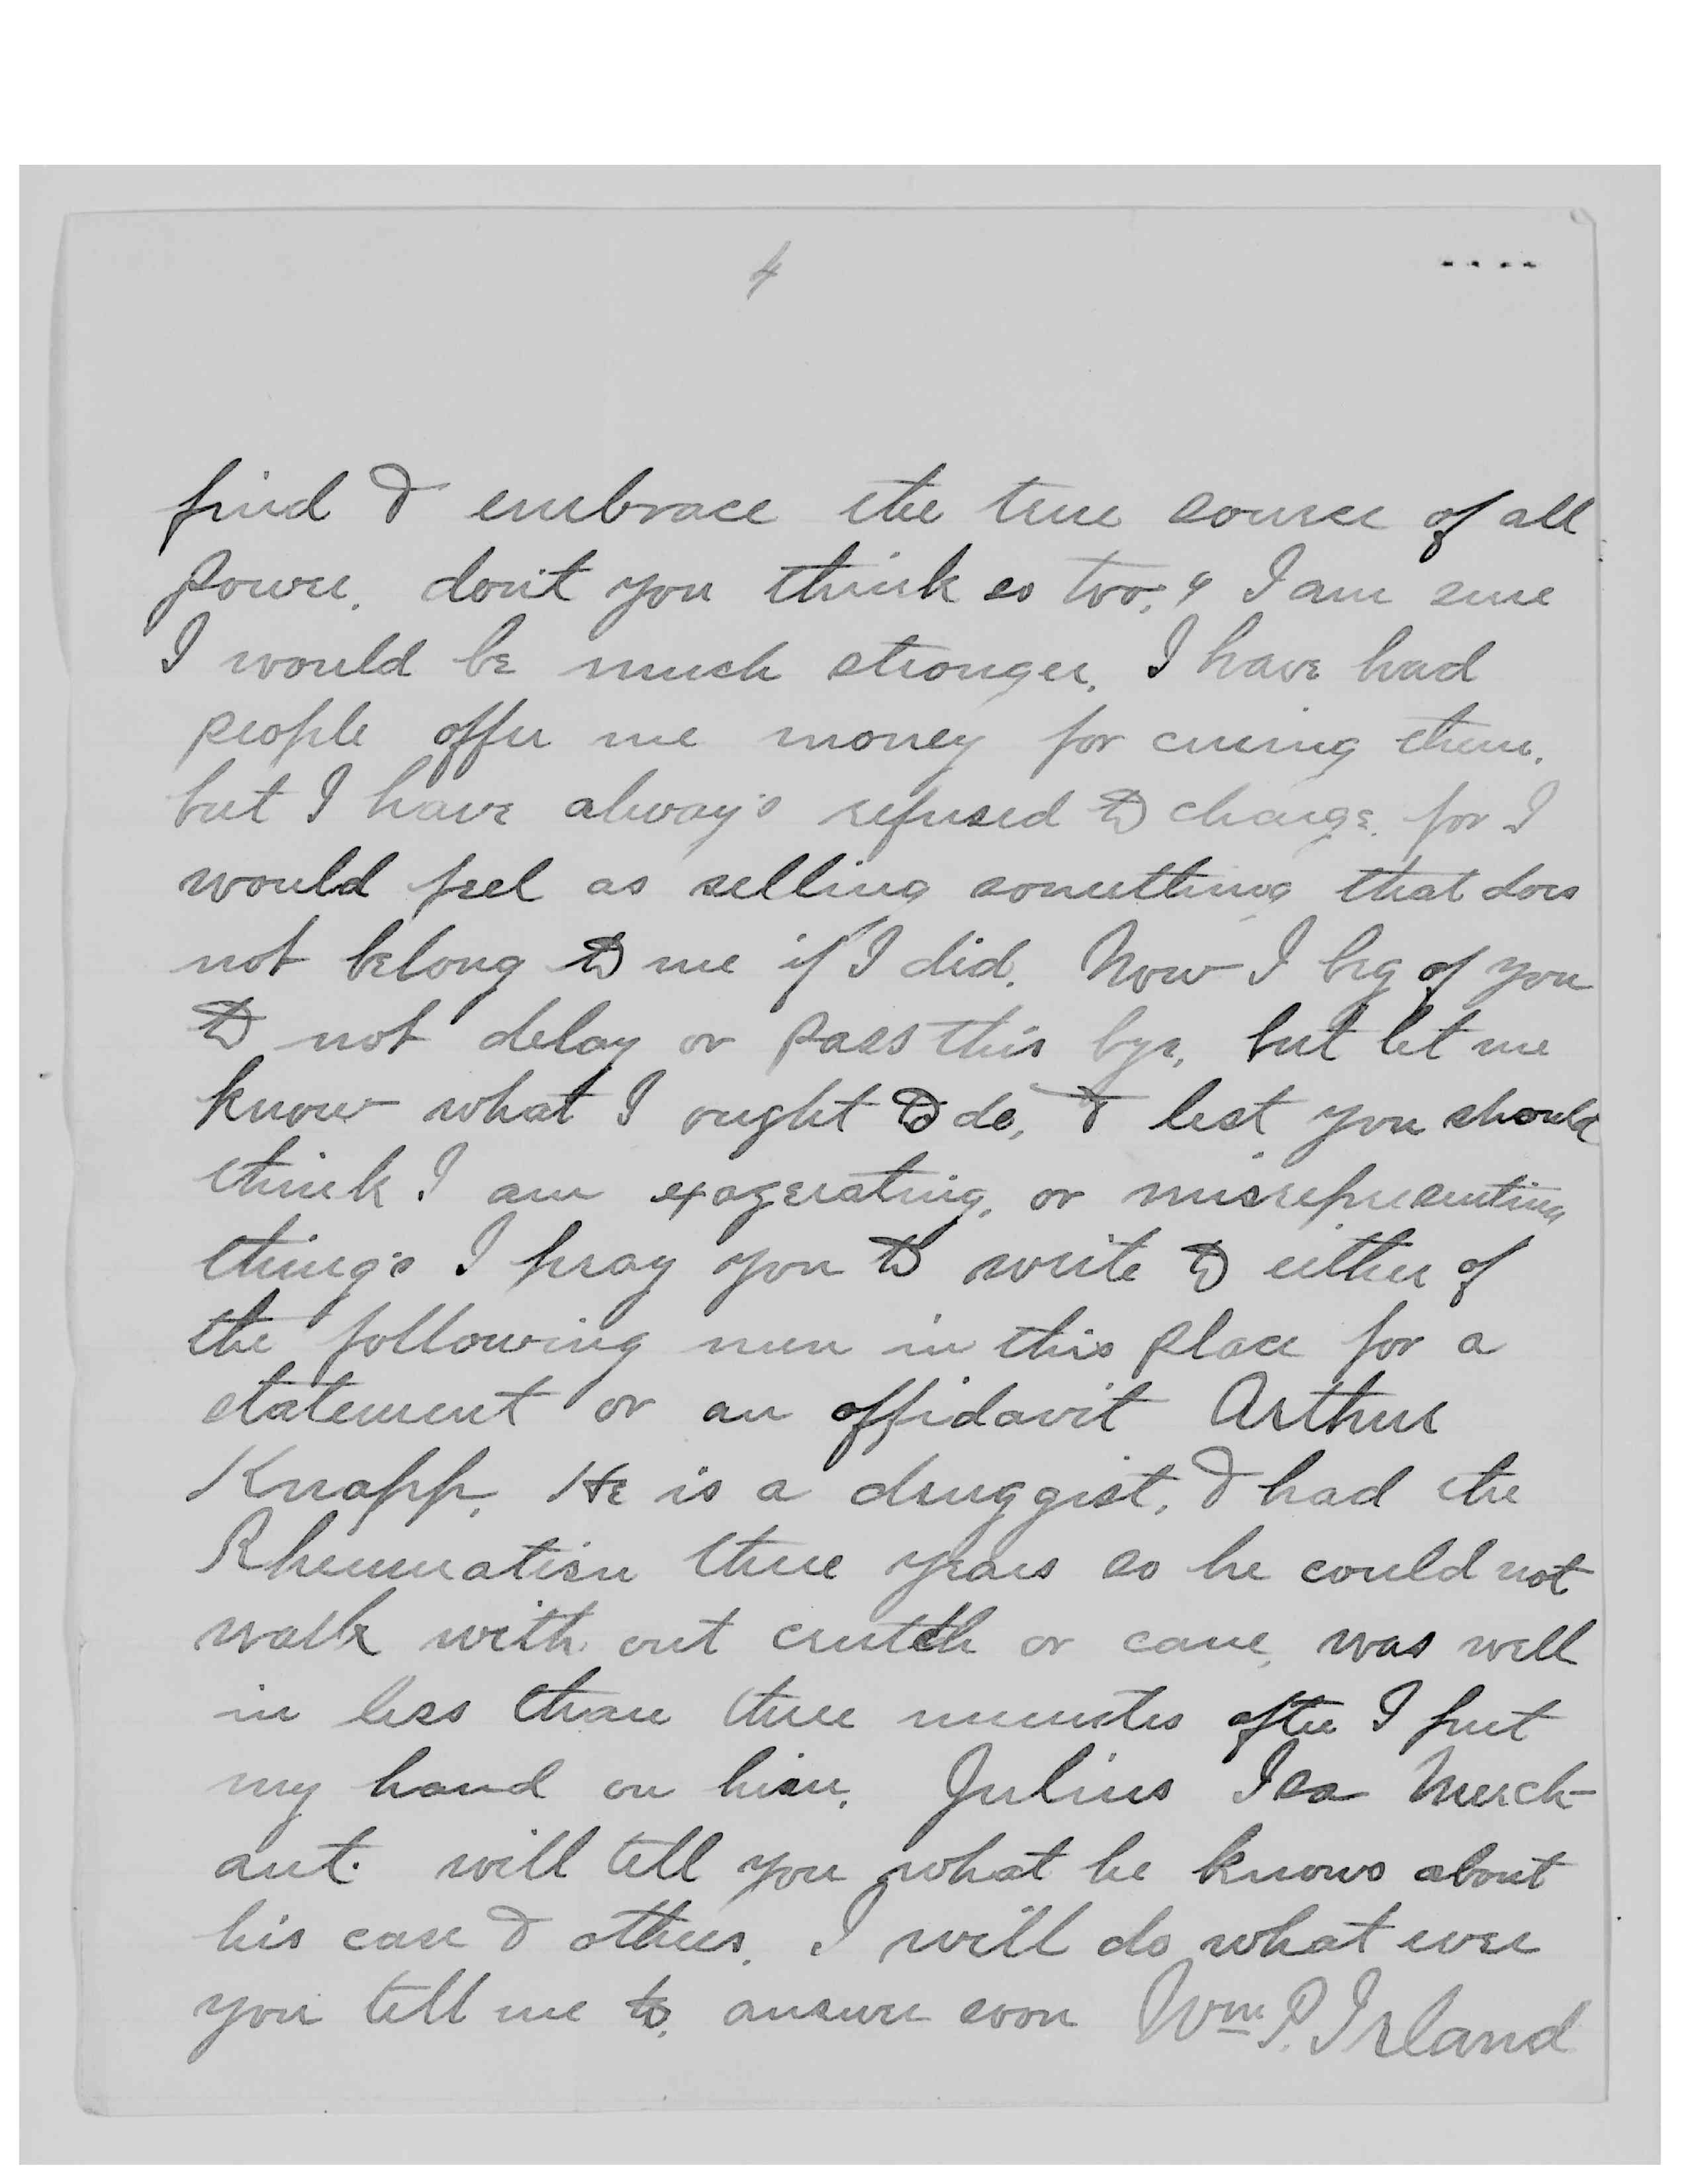 4
find & embrace the true source of all
Power. don't you think so too.? I am sure
I would be much stronger. I have had
people offer me money for curing them.
but I have always refused to charge. for I
would feel as selling something that does
not belong to me if I did. Now I beg of you
to not delay or pass this bye, but let me
know what I ought to do, & lest you should
think I am exagerating, or misrepresenting
things I pray you to write to either of
the following men in this place for a
statement or an affidavit Arthur
Knapp, He is a druggist, & had the
Rheumatism three years so he could not
walk with out crutch or cane, was well
in less than three minutes after I put
my hand on him. Julius Merch-
ant. will tell you what he knows about
his case & others. I will do what ever
you tell me to. answer soon Wm. P. Irland